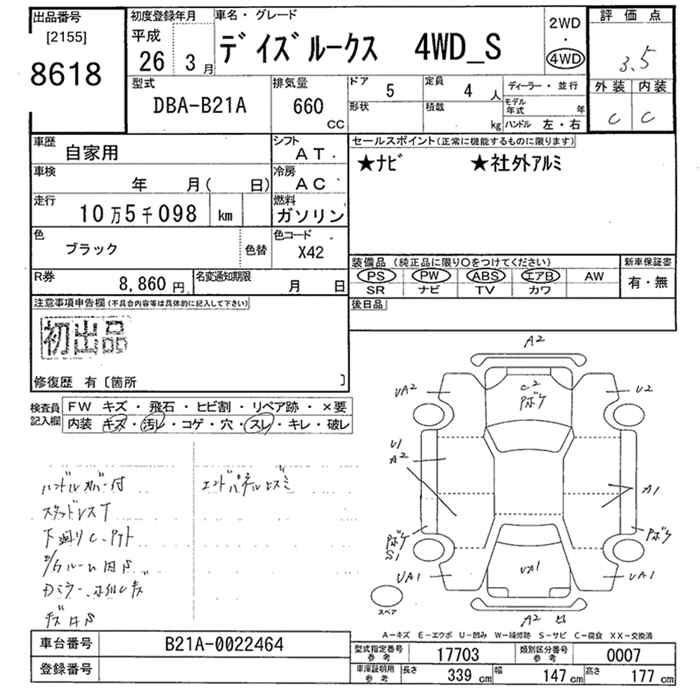 出品番号 初度登録年月 車名・グレード 2WD 評価点
[2155] 平成 デイズルークス 4WD_S ・ 3.5
8618 26 3月 4WD
型式 排気量 ドア 5 定員 4人 ディーラー・並行 外装 内装
DBA-B21A 660 CC 形状 積載 kg モデル年式 年 C C
ハンドル 左・右
車歴 自家用 シフト AT. セールスポイント(正常に機能するものに限ります)
車検 年 月( 日) 冷房 AC ★ナビ ★社外アルミ
走行 10万5千098 km 燃料 ガソリン
色 ブラック 色替 色コード X42 装備品 (純正品に限り○をつけてください) 新車保証書
PS PW ABS エアB AW 有・無
R券 8,860円 名変通知期限 月 日 SR ナビ TV カワ
注意事項申告欄(不具合内容等は具体的に記入して下さい) 後日品
初出品
修復歴 有〔箇所 〕
検査員記入欄 FW キズ・飛石・ヒビ割・リペア跡・×要
内装 キズ・汚レ・コゲ・穴・スレ・キレ・破レ
A2
UA2 C2 U2
Pボケ
U1
A2 A1
ハンドルカバー付 エンドパネルヒズミ
スタッドレスT
下廻りC
Pボケ Pボケ
S1
UA1 UA1 UA1
スペア A2
A-キズ E-エクボ U-凹み W-補修跡 S-サビ C-腐食 XX-交換済
車台番号 B21A-0022464 型式指定番号 参考 17703 類別区分番号 参考 0007
登録番号 車庫証明用 参考 長さ 339cm 幅 147cm 高さ 177cm